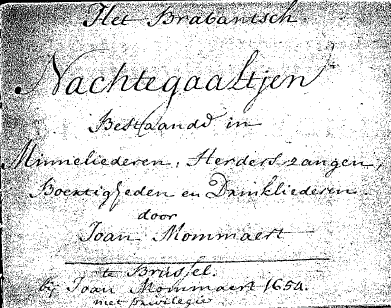 Het Brabantsch
Nachtegaaltjen
Bestaande in
Minneliederen, Herderszangen,
Boertigheden en Drinkliederen
door
Joan Mommaert
te Brussel.
bij Joan Mommaert 1654.
met privilegie